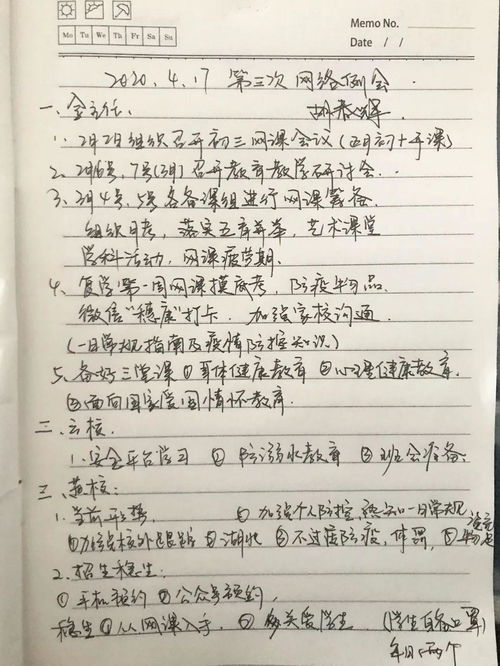 Memo No.
Mo Tu We Th Fr Sa Su
Date / /
2020.4.17 第三次网络例会.
一、金主任:
1. 2月2日组织召开初三网课会议(四月初十开课)
2. 2月6号,7号(3月)召开教育教学研讨会.
3. 3月4号,5号各备课组进行网课筹备.
组织月考,落实五育并举,艺术课堂
学科活动,网课疲劳期.
4. 复学第一周网课摸底考,防疫物品.
微信"穗康"打卡. 加强家校沟通.
(一日常规指南及疫情防控知识)
5. 备好三堂课 ①身体健康教育 ②心理健康教育.
③面向国家爱国情怀教育.
二、云校.
1. 安全平台学习 ② 防溺水教育 ③ 班会准备.
三、黄校:
1. 当前形势, ① 加强个人防控,熟知一日常规
②加强校外追踪 ③湖北 ④不过度防疫,体罚,⑤物
2. 招生稳生:
①手机预约 ②公众号预约,
稳生 ①从网课入手. ② 多关爱学生 (学生自备口罩)
每日两个